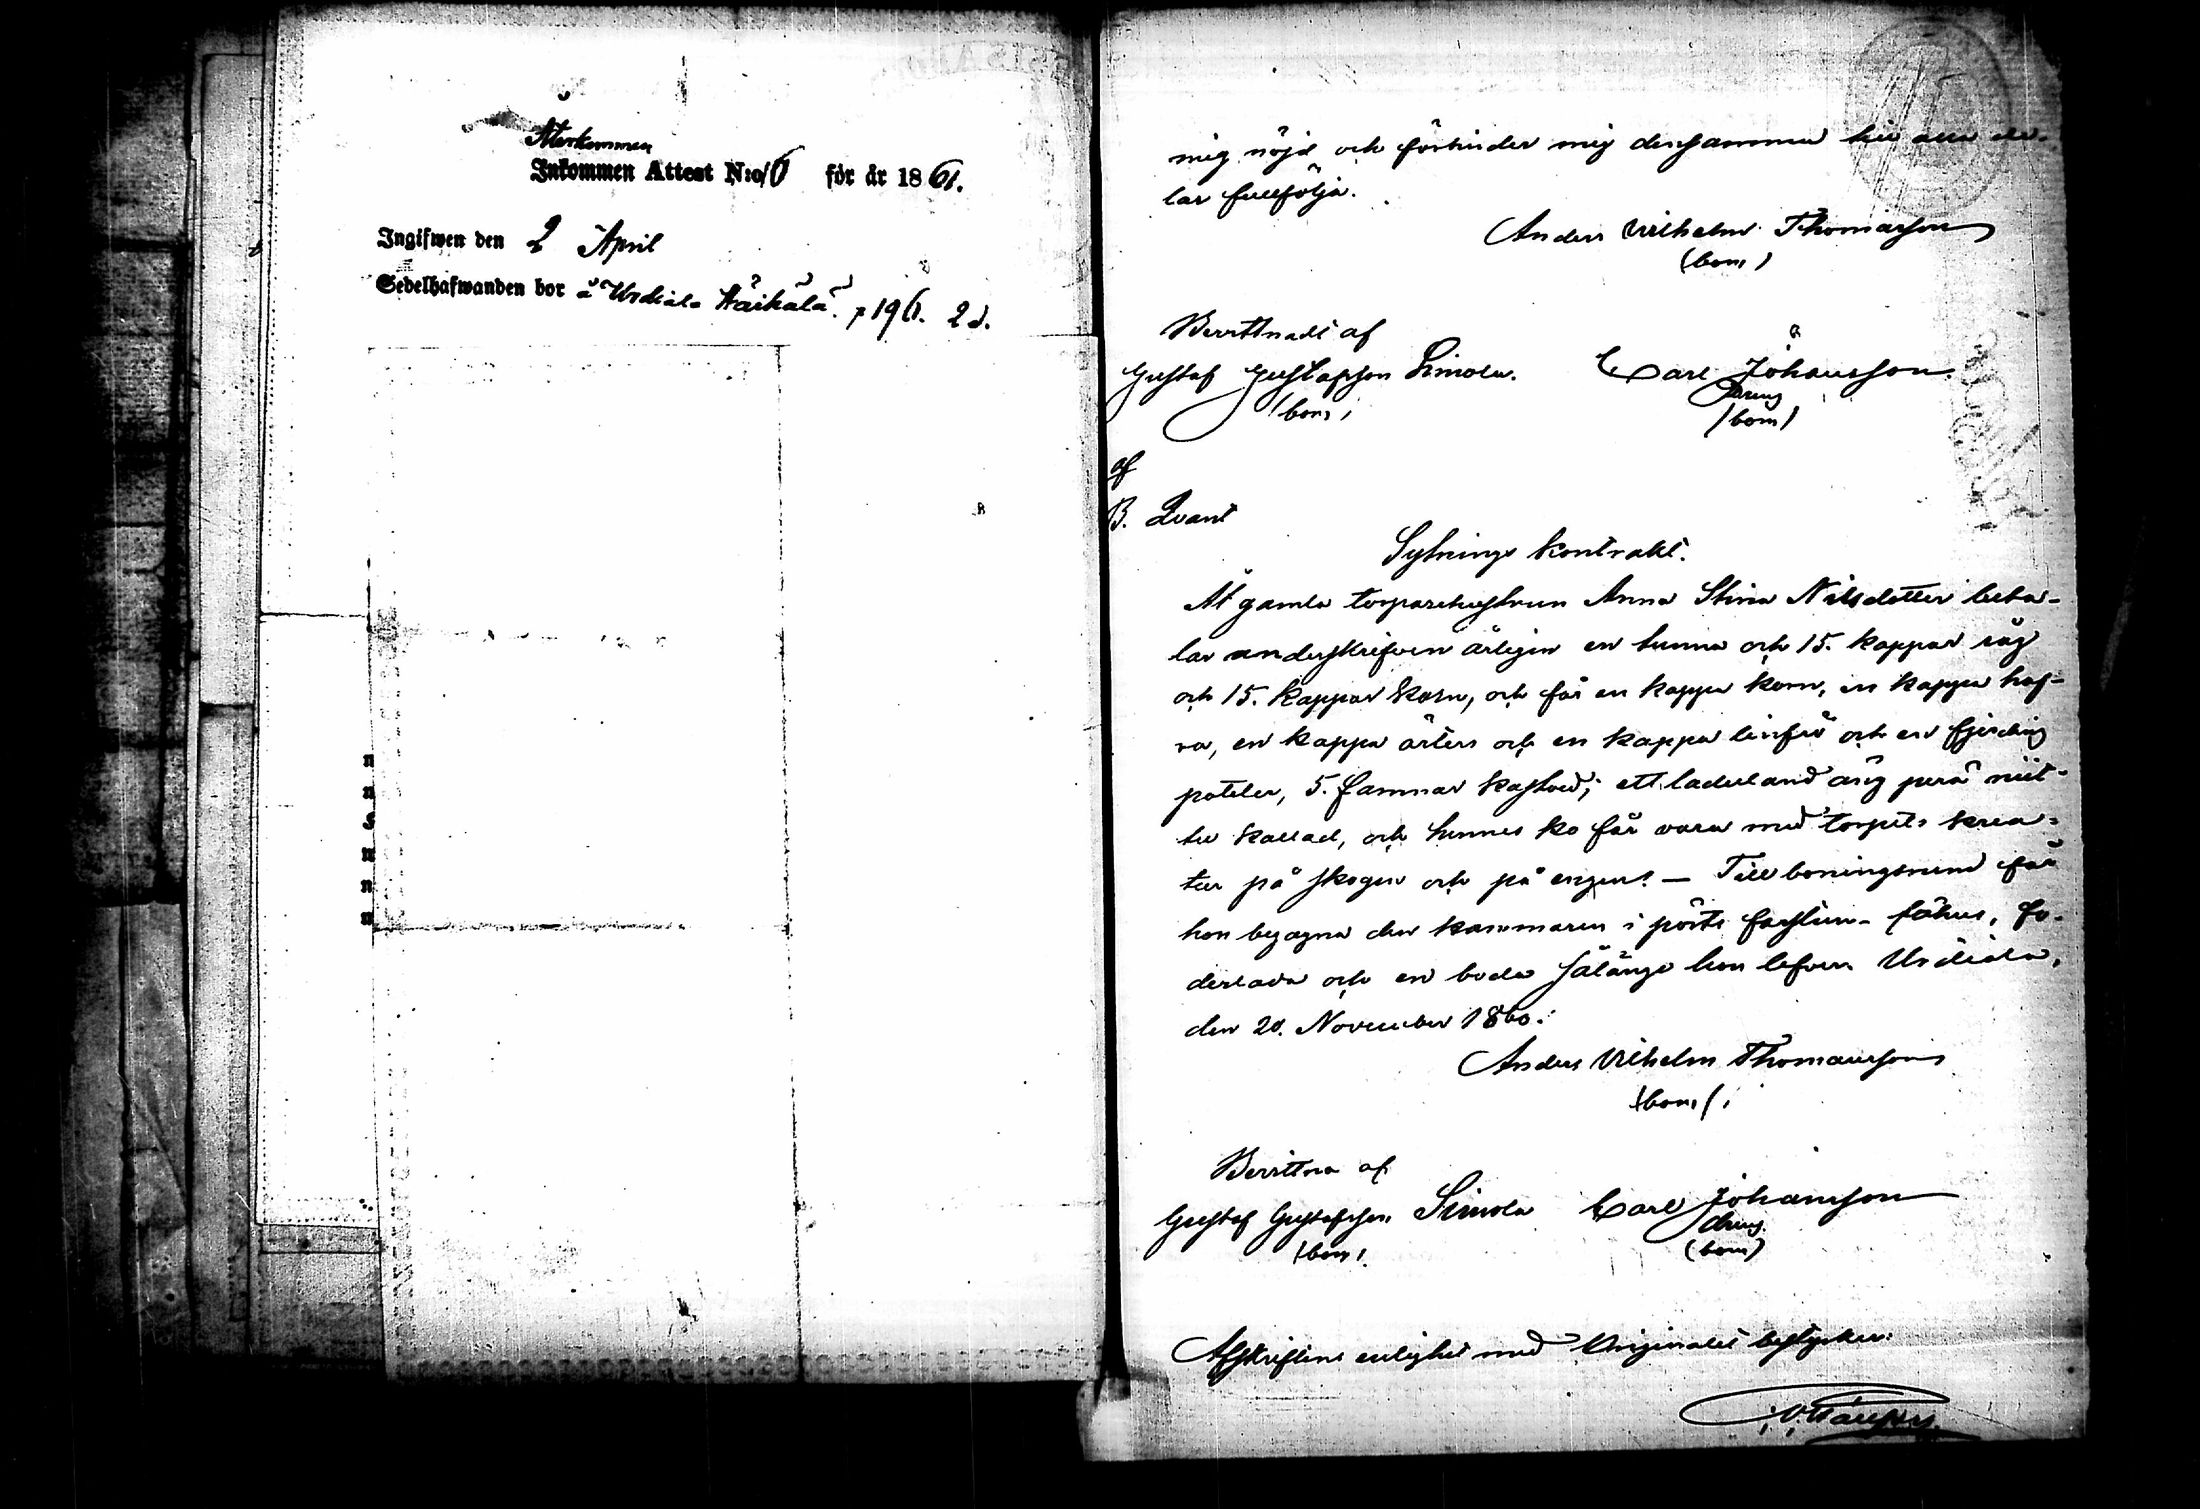 Återkommen
Inkommen Attest N:o 6 för år 1861.
Ingifwen den 2 April
Sedelhafwanden bor å Urdiala Häihälä. p 196. 2 d.
mig nöjd och förbinder mig densamma till alla de-
lar fullfölja.
Anders Vilhelm Thomasson
(bom)
Bevittnadt af
Gustaf Gustafsson Simola. Carl Johansson
dräng
(bom) (bom)
af
B. Qvant
Sytnings kontrakt.
Åt gamla torparehustrun Anna Stina Nilsdotter beta-
lar underskrifven årligen en tunna och 15. kappar råg
och 15. kappar korn, och får en kappa korn, en kappa haf-
ra, en kappa ärter och en kappa linfrö och en fjerding
poteter, 5. famnar kastved; ett ladeland äng perä niit-
tu kallad, och hennes ko får vara med torpets krea-
tur på skogen och på ängen. — Till boningsrum får
hon begagna den kammaren i pörts farstun fähus, fo-
derlada och en boda sålänge hon lefver. Urdiala,
den 20. November 1860.
Anders Vilhelm Thomasson
(bom)
Bevittna af
Gustaf Gustafsson Simola Carl Johansson
dräng
(bom) (bom)
Afskriftens enlighet med Originalet bestyrker: